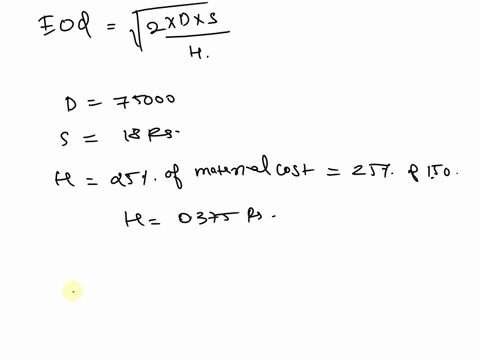 EOQ = √2×D×S
H.
D = 75000
S = 18 Rs.
H = 25% of material cost = 25% of 1.50.
H = 0.375 Rs.